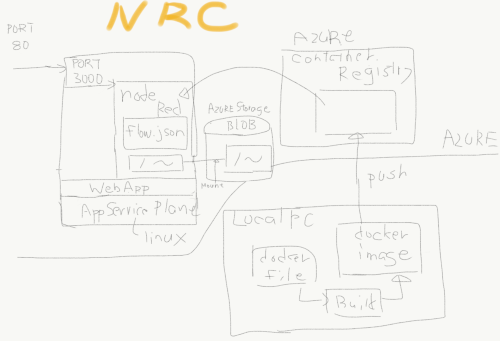 NRC
PORT
80
PORT
3000
node
Red
flow.json
/~
WebApp
AppService Plane
linux
AZURE Storage
BLOB
/~
Mount
AZURE
Container
Registry
AZURE
push
Local PC
docker
file
Built
docker
image